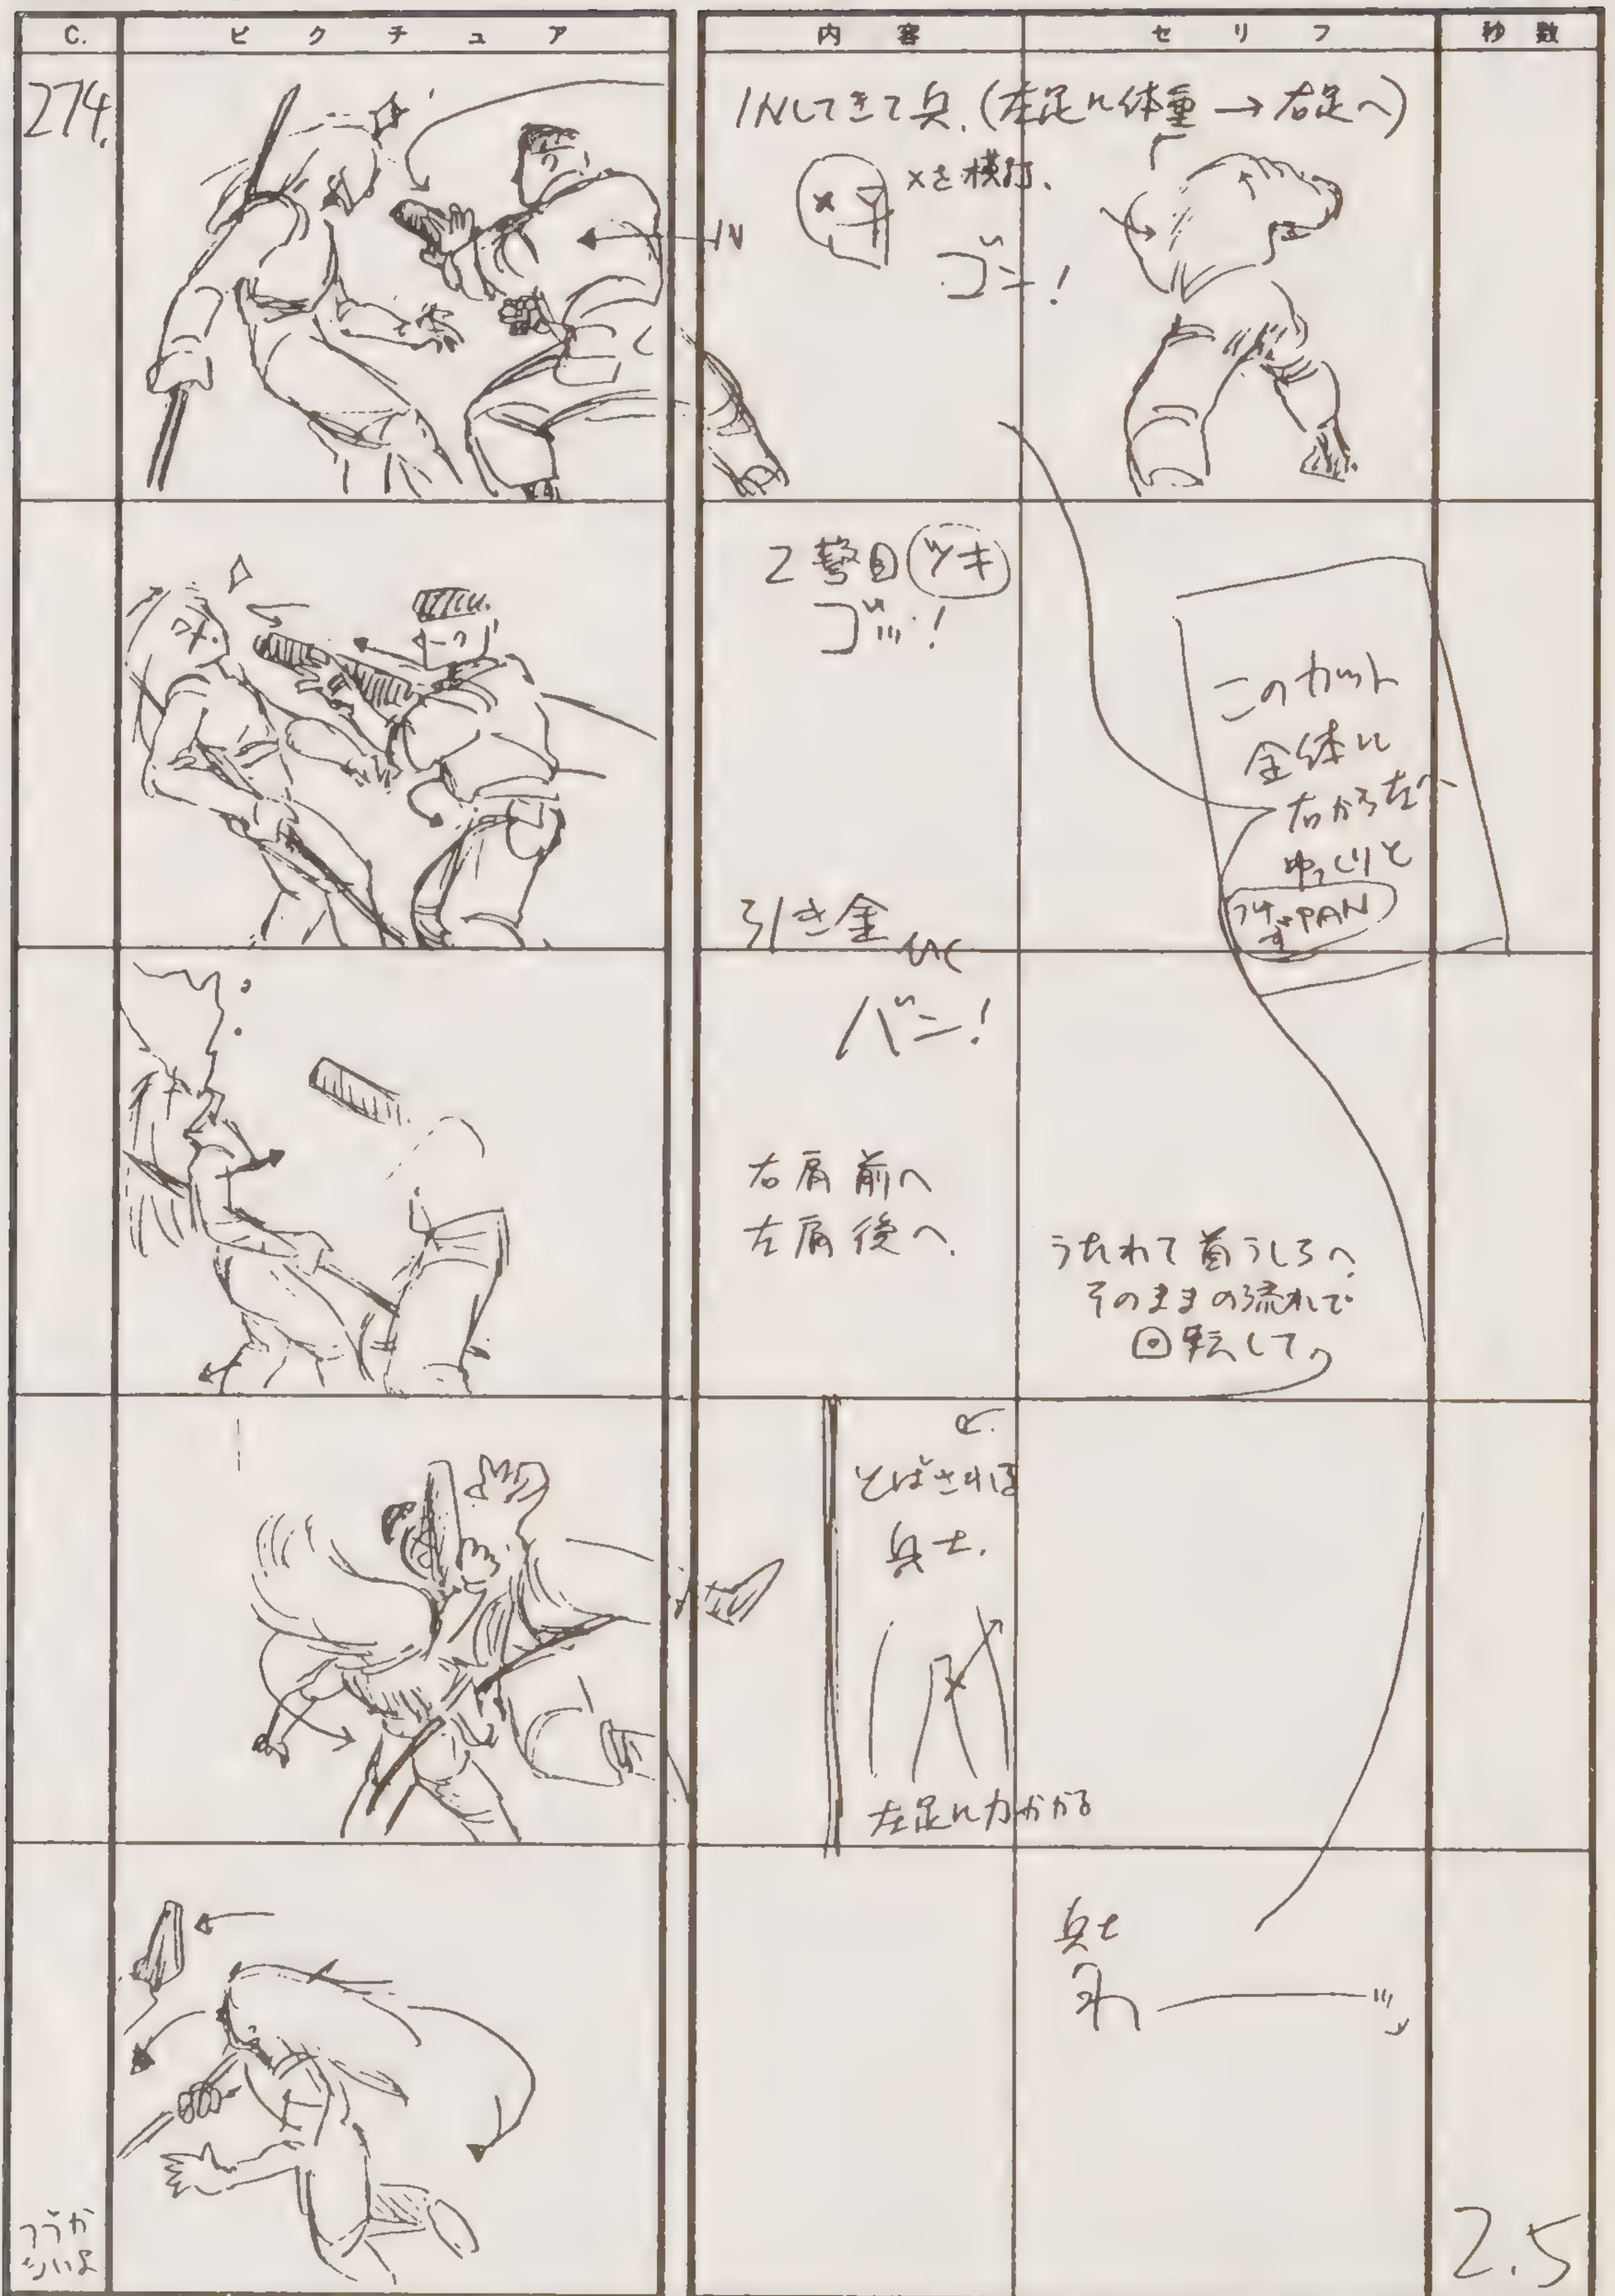 C.
ピクチュア
内容
セリフ
秒数
274.
INしてきて兵.(左足に体重→右足へ)
×を横打.
IN
ゴン!
2撃目 ツキ
ゴッ!
このカット
全体に
右から左へ
ゆっくりと
PAN
引き金 ひく
バン!
右肩前へ
左肩後へ.
うたれて首うしろへ.
そのままの流れで
回転して
とばされる
兵士.
左足に力かかる
兵士
2.5